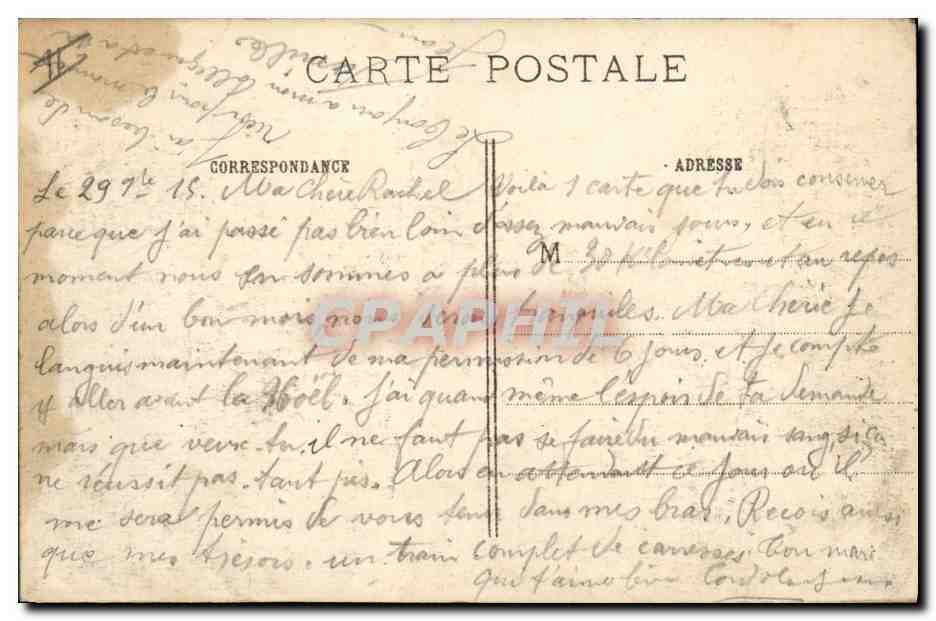 CARTE POSTALE
CORRESPONDANCE
ADRESSE
M
Le 29 9bre 15. Ma Chère Rachel Voilà 1 carte que tu dois conserver
parce que j'ai passé pas bien loin d'assez mauvais jours, et en ce
moment nous en sommes a plus de 30 Kilomètres et au repos
alors d'un bon mois nous serons tranquiles. Ma Chérie Je
languis maintenant de ma permission de 6 jours et Je compte
y aller avant la Noël. J'ai quand même l'espoir de ta demande
mais que veux-tu il ne faut pas se faire du mauvais sang, si ça
ne réussit pas. tant pis. Alors en attendant ce jour où il
me sera permis de vous tenir dans mes bras, Reçois ainsi
que mes trésors, un train complet de caresses. Ton mari
qui t'aime bien
Le bonjour a mon collègue
rien pour le
J'ai besoin de
CPAPHIL